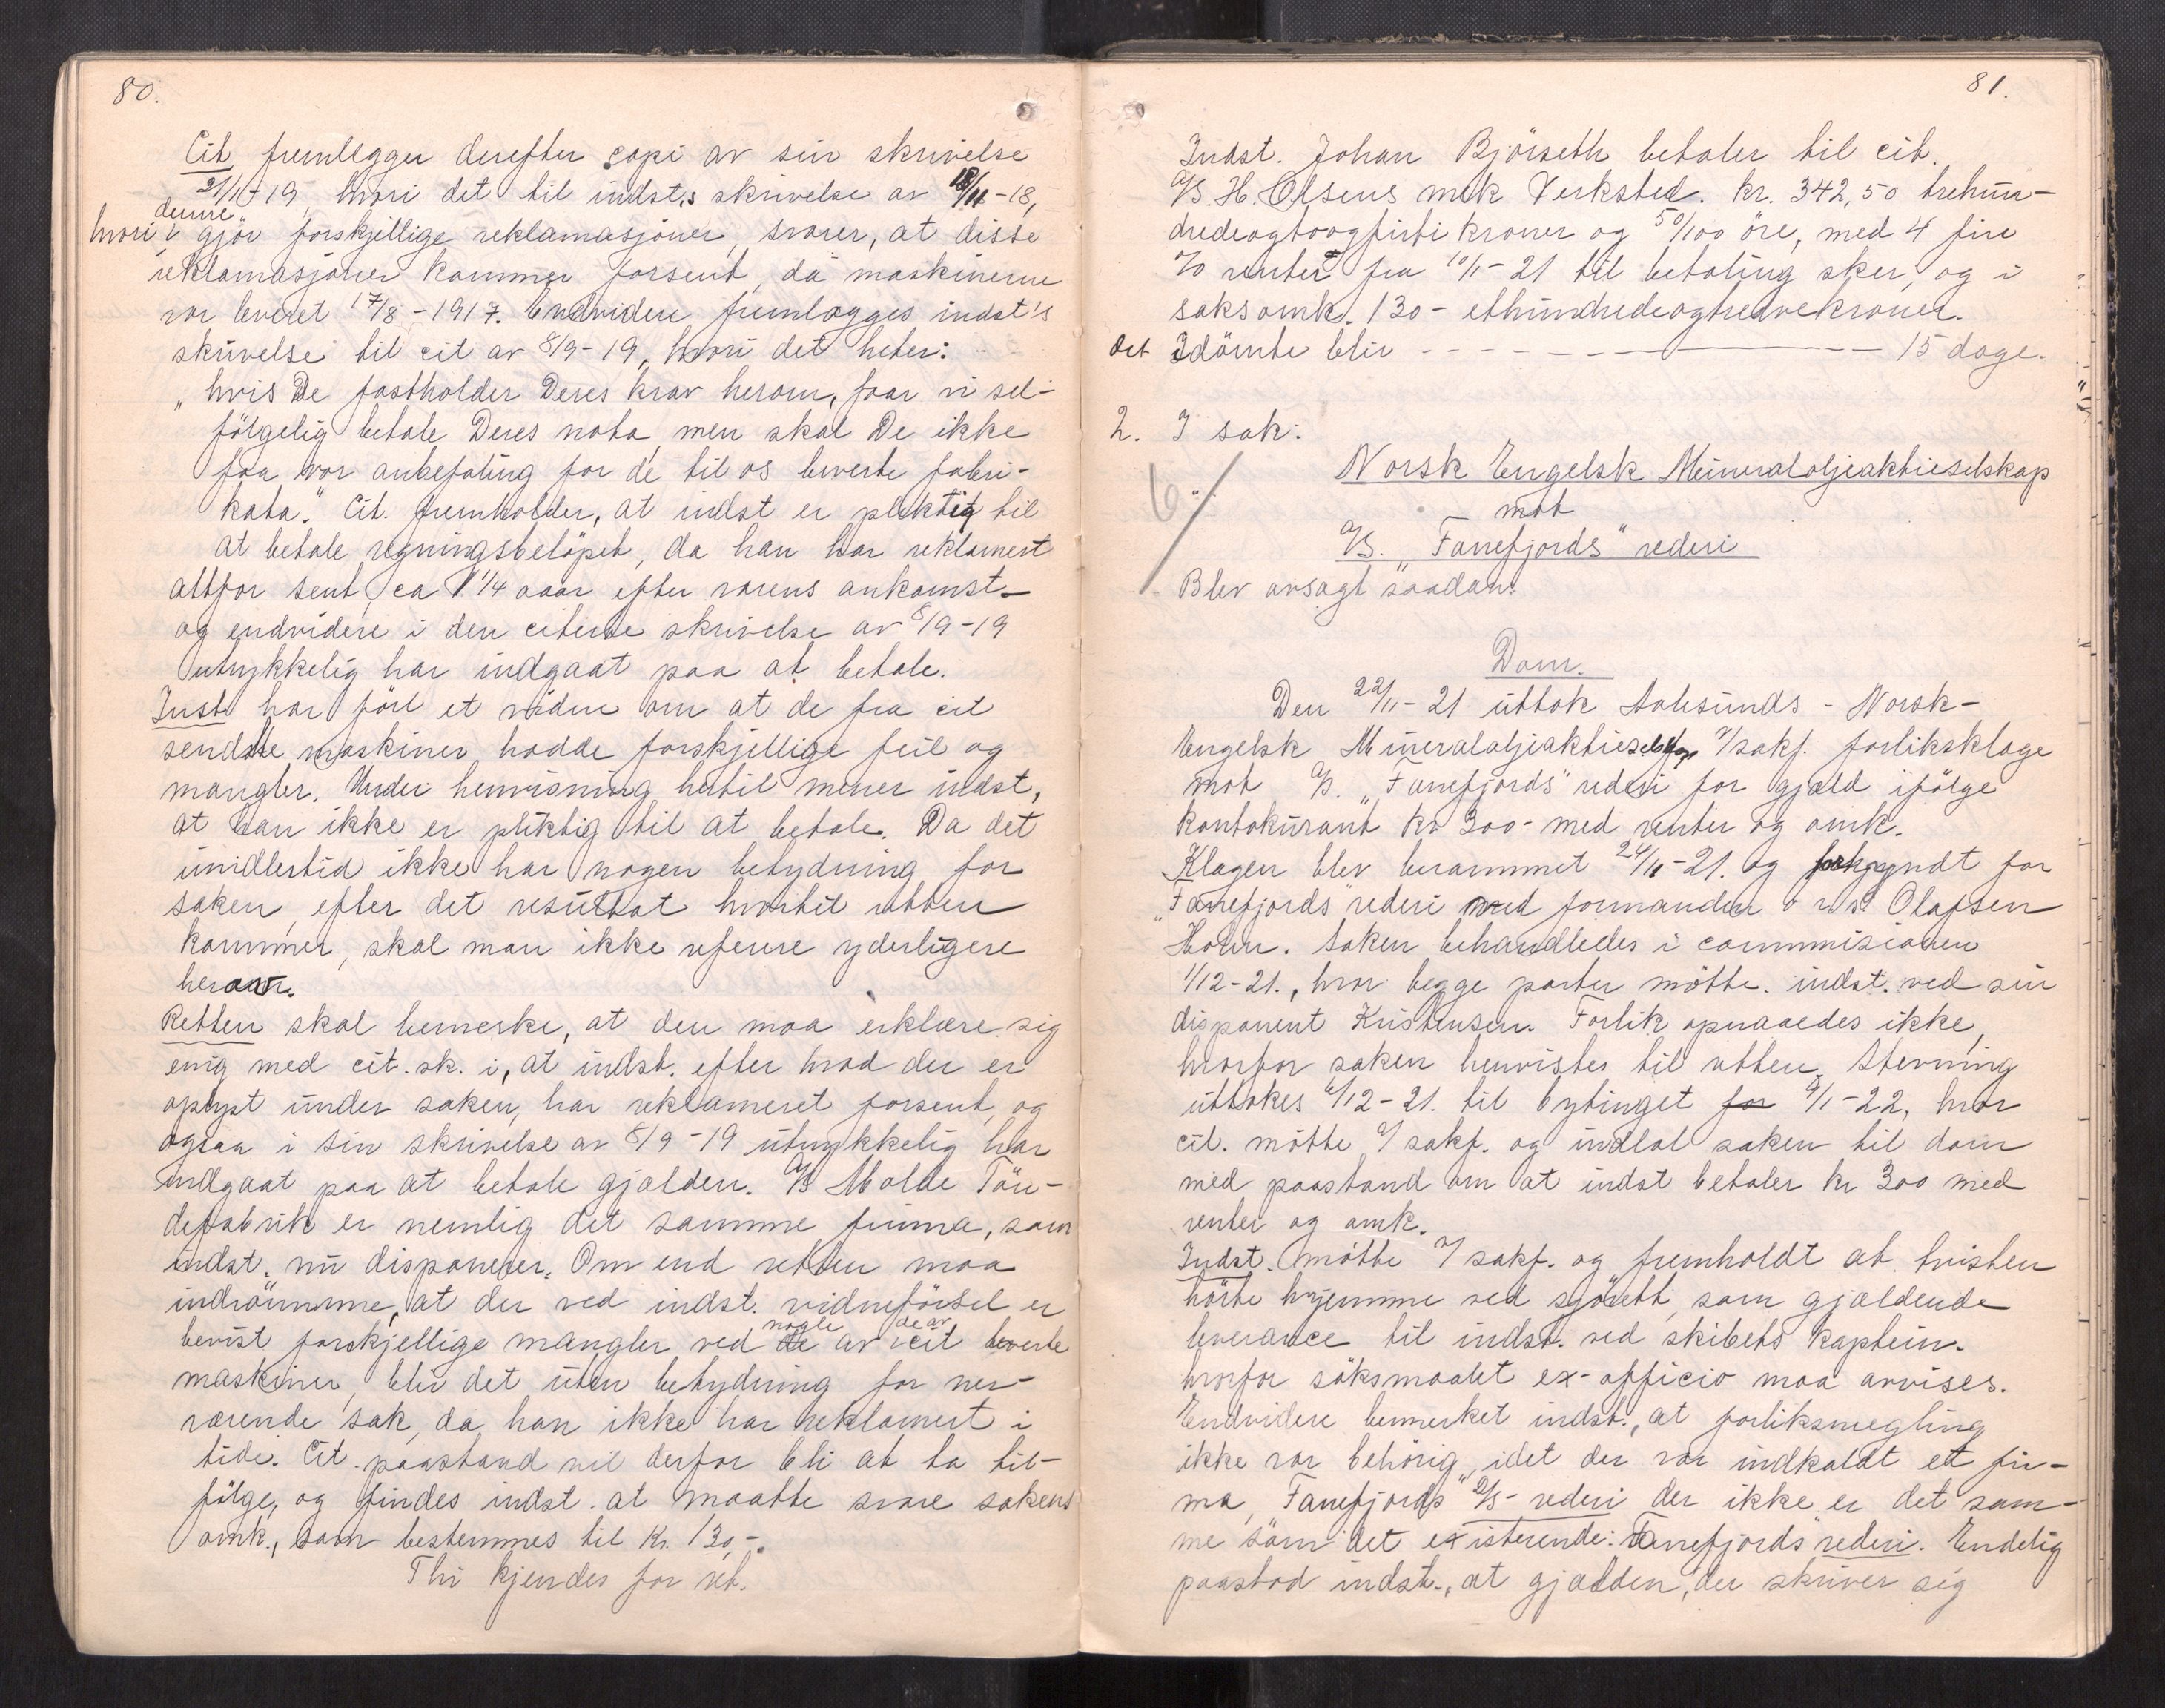 80.
Cit. fremlegger derefter copi av sin skrivelse
21/1-19, hvori det til indst,s skrivelse av 18/11-18,
hvori denne gjör forskjellige reklamasjoner, svarer, at disse
reklamasjoner kommer forsent, da maskinerne
var leveret 17/8-1917. Endvidere fremlægges indst's
skrivelse til cit av 8/9-19, hvori det heter:
„hvis De fastholder Deres krav herom, faar vi sel-
fölgelig betale Deres nota, men skal De ikke
faa vor anbefaling for de til os leverte fabri-
kata." Cit. fremholder, at indst er pliktig til
at betale regningsbelöpet, da han har reklamert
altfor sent, ca 1 1/4 aaar efter varens ankomst_
og endvidere i den citerte skrivelse av 8/9-19
utrykkelig har indgaat paa at betale.
Inst. har fört et vidne om at de fra cit
sendte maskiner hadde forskjellige feil og
mangler. Under henvisning hertil mener indst,
at han ikke er pliktig til at betale. Da det
imidlertid ikke har nogen betydning for
saken, efter det resultat hvortil retten
kommer, skal man ikke referere yderligere
herom.
Retten skal bemerke, at den maa erklære sig
enig med cit. sk. i, at indst. efter hvad der er
oplyst under saken, har reklameret forsent, og
ogsaa i sin skrivelse av 8/9-19 utrykkelig har
indgaat paa at betale gjælden. A/S Molde Tön-
defabrik er nemlig det samme firma, som
indst. nu disponerer. Om end retten maa
indrömme, at der ved indst. vidneförsel er
bevist forskjellige mangler ved nogle de av de av cit leverte
maskiner, blir det uten betydning for ner-
værende sak, da han ikke har reklamert i
tide. Cit. paastand vil derfor bli at ta til-
fölge, og findes indst. at maatte svare sakens
omk., som bestemmes til Kr. 130,-.
Thi kjendes for ret.
81.
Indst. Johan Björseth betaler til cit.
A/S. H. Olsens mek Verksted. kr. 342,50 trehun-
dredeogtoogfirti kroner og 50/100 öre, med 4 fire
% renter fra 10/1-21 til betaling sker, og i
saksomk. 130- ethundredeogtredvekroner.
Det Idömte blir - - - - - - 15 dage.
2. I sak:
Norsk Engelsk Mineraloljeaktieselskap
mot
A/S. "Fanefjords" rederi
Blev avsagt saadan:
Dom.
Den 22/11-21 uttok Aalesunds - Norsk-
Engelsk Mineraloljeaktieselskap v/sakf. forliksklage
mot A/S. „Fanefjords" rederi for gjæld ifölge
kontokurant kr 300- med renter og omk.
Klagen blev berammet 24/11-21. og forkyndt for
„Fanefjords" rederi ved formanden Olafsen
Holm. Saken behandledes i commisionen
1/12-21., hvor begge parter mötte. indst. ved sin
disponent Kristensen. Forlik opnaaedes ikke,
hvorfor saken henvistes til retten. Stevning
uttokes /12-21. til bytinget for /1-22, hvor
cit. mötte v/ sakf. og indlot saken til dom
med paastand om at indst betaler kr 300 med
renter og omk.
Indst. mötte v/ sakf. og fremholdt at tvisten
hörte hjemme ved sjörett, som gjældende
leverance til indst. ved skibets kaptein.
hvorfor söksmaalet ex-officio maa avvises.
Endvidere bemerket indst., at forliksmegling
ikke var behörig, idet der var indkaldt et fir-
ma, "Fanefjords" A/S- rederi der ikke er det sam-
me som det existerende: Fanefjords" rederi. Endelig
paastod indst., at gjælden, der skriver sig